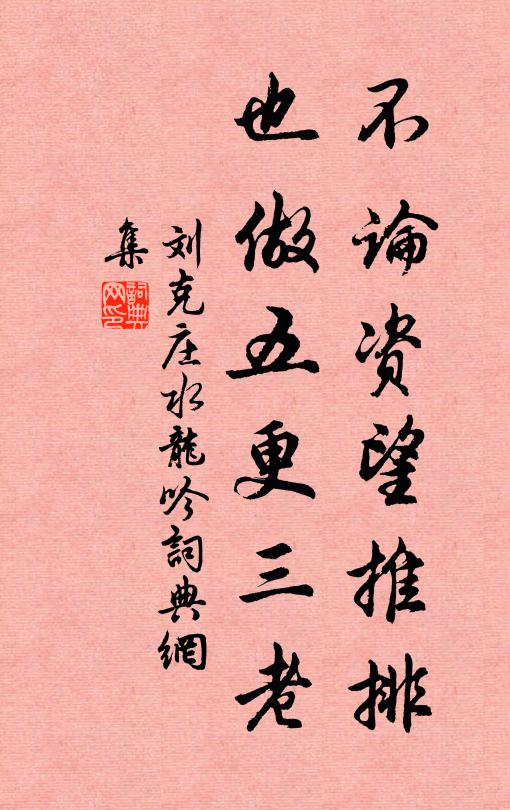 不論资望推排
也做五更三老
刘克庄水龍吟詞典網
集
詞典网印